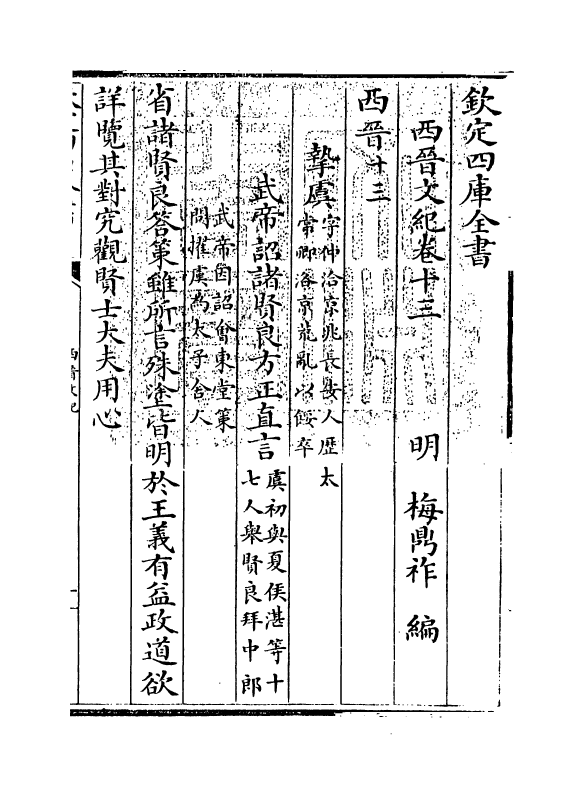 欽定四庫全書
西晉文紀卷十三
明 梅鼎祚 編
西晉十三
摯虞字仲洽京兆長安人歷太
常卿洛京荒亂以餒卒
武帝詔諸賢良方正直言虞初與夏侯湛等十
七人舉賢良拜中郎
武帝因詔會東堂策
問擢虞為太子舍人
省諸賢良答策雖所言殊塗皆明於王義有益政道欲
詳覽其對究觀賢士大夫用心
西晉文紀